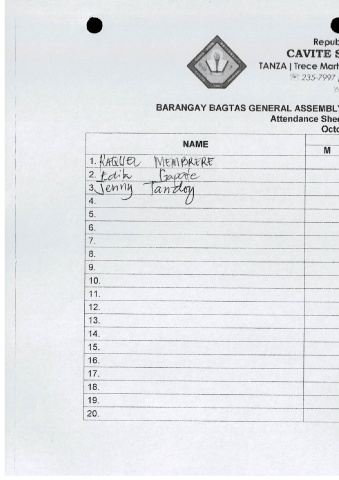 Repub
CAVITE S
TANZA | Trece Mart
235-7997
BARANGAY BAGTAS GENERAL ASSEMBL
Attendance Shee
Octo
NAME
M
1. RAQUEL MEMBRERE
2. Edith
3. Jenny Tandoy
4.
5.
6.
7.
8.
9.
10.
11.
12.
13.
14.
15.
16.
17.
18.
19.
20.